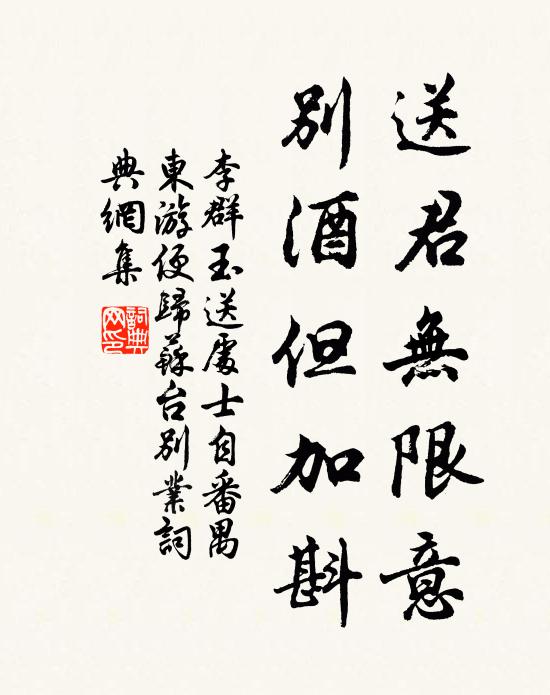 送君無限意
別酒但加斟
李群玉送處士自番禺
東游便歸蘇台別業詞
典網集
詞典
网印